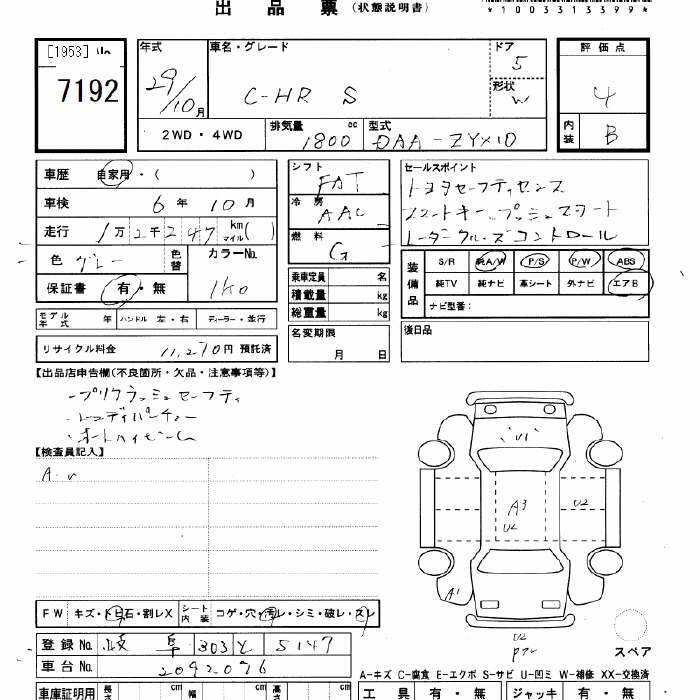 出品票 (状態説明書)
*1003313399*
[1953]
7192
年式 29/10月
車名・グレード C-HR S
ドア 5
形状 W
評価点 4
内装 B
2WD・4WD 排気量 1800 cc 型式 DAA-ZYX10
車歴 自家用・( )
車検 6年 10月
走行 1万2千247 km マイル( )
色 グレー 色替 カラーNo. 1K0
保証書 有・無
シフト FAT
冷房 AAC
燃料 G
乗車定員 名
積載量 kg
総重量 kg
セールスポイント
トヨタセーフティセンス
スマートキー プッシュスタート
レーダークルーズコントロール
装備品 S/R 純A/W P/S P/W ABS
純TV 純ナビ 革シート 外ナビ エアB
ナビ型番:
モデル年式 年 ハンドル 左・右 ディーラー・並行
名変期限 月 日
後日品
リサイクル料金 11,270円 預託済
【出品店申告欄(不良箇所・欠品・注意事項等)】
・プリクラッシュセーフティ
・レーンディパーチャー
・オートハイビーム
【検査員記入】
A・U
U1
A3
U2
U2
A1
U2
FW キズ・トビ石・割レX シート内装 コゲ・穴・汚レ・シミ・破レ・スレ
登録No. 岐阜 303 と 5147
車台No. 2092096
スペア
A-キズ C-腐食 E-エクボ S-サビ U-凹ミ W-補修 XX-交換済
車庫証明用 長さ cm 幅 cm 高さ cm 工具 有・無 ジャッキ 有・無